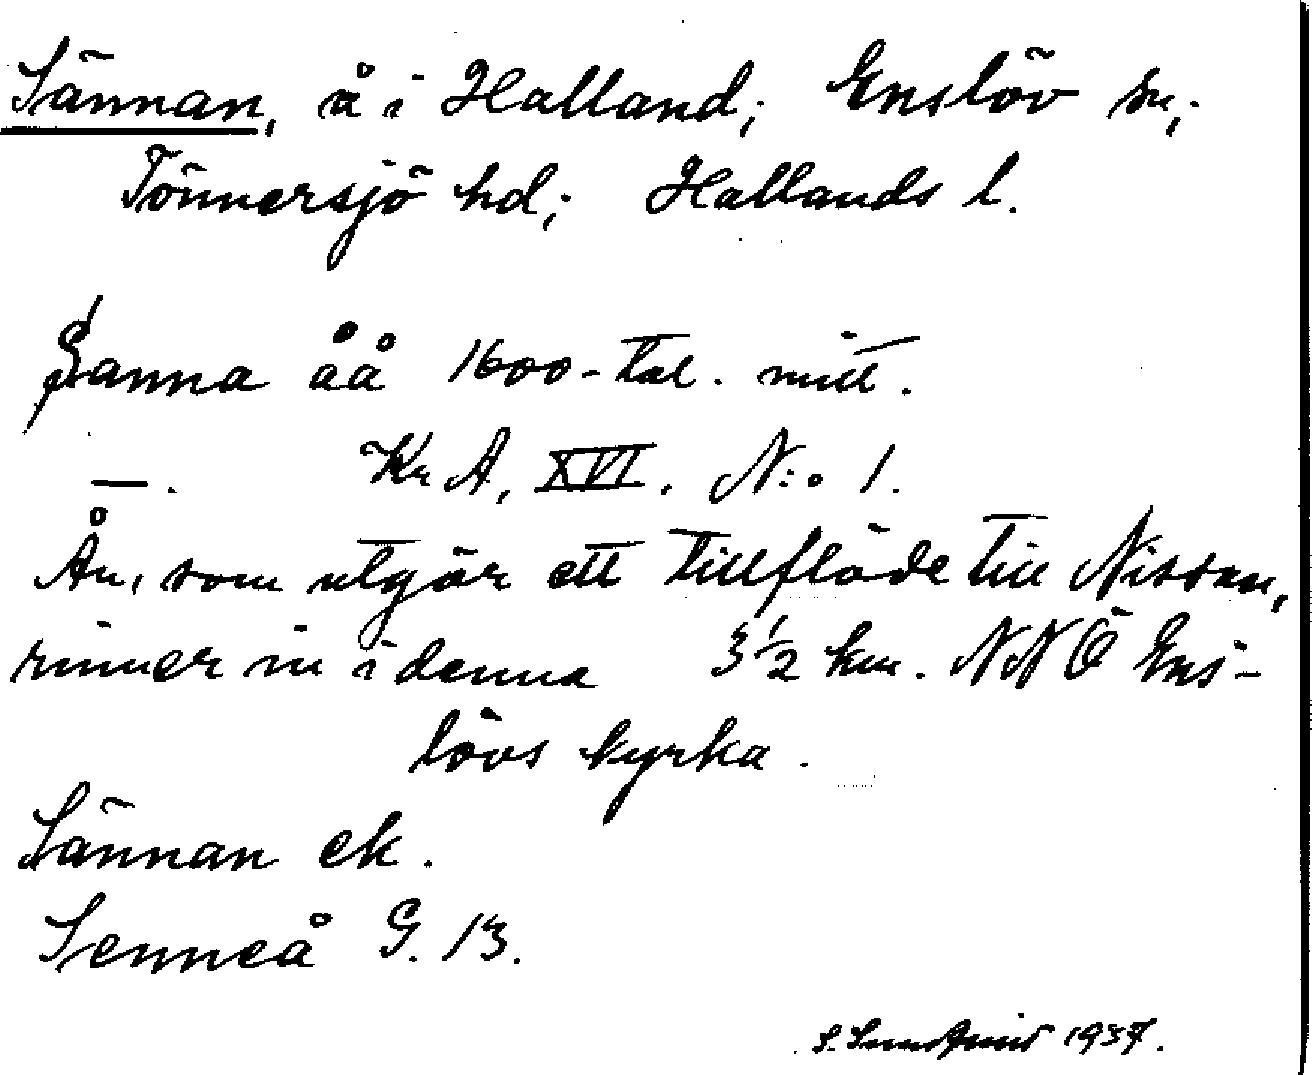 Sännan, å i Halland; Enslöv sn;
Tönnersjö hd; Hallands l.
Sanna åå 1600-tal. mitt.
—. Kr A, XVI, N:o 1.
Ån, som utgör ett tillflöde till Nissan,
rinner in i denna 3 1/2 km. NNÖ Ens-
lövs kyrka.
Sännan ek.
Senneå G. 13.
S. 1937.